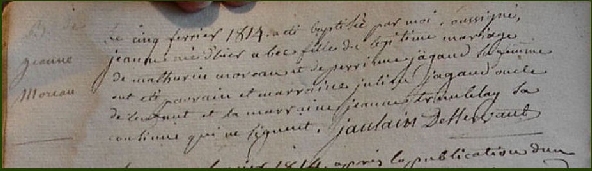 B.
jeanne
Moreau
Le cinq fevrier 1814 a eté baptisée par moi soussigné,
jeanne née d'hier a bec fille du legitime mariage
de mathurin moreau et de perrinne jagaud le
ont eté parrain et marraine julien jagaud oncle
de l'enfant et la marraine jeanne tremblay sa
cousinne qui ne signent.
fevrier 1814 après la publication d'un